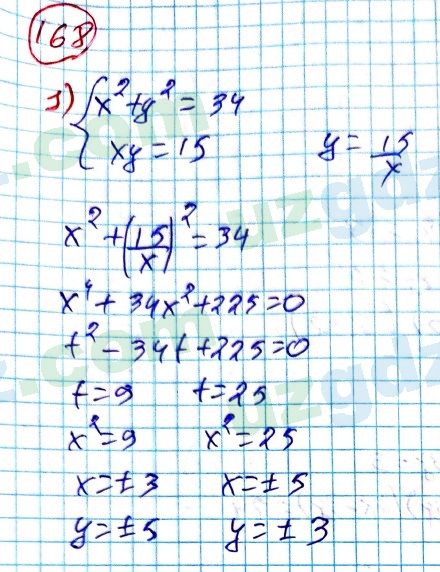 168
1) { x² + y² = 34
xy = 15 y = 15/x
x² + (15/x)² = 34
x⁴ + 34x² + 225 = 0
t² - 34t + 225 = 0
t = 9 t = 25
x² = 9 x² = 25
x = ±3 x = ±5
y = ±5 y = ±3
uzgdz
z.com
uzgdz
z.com
uzgdz